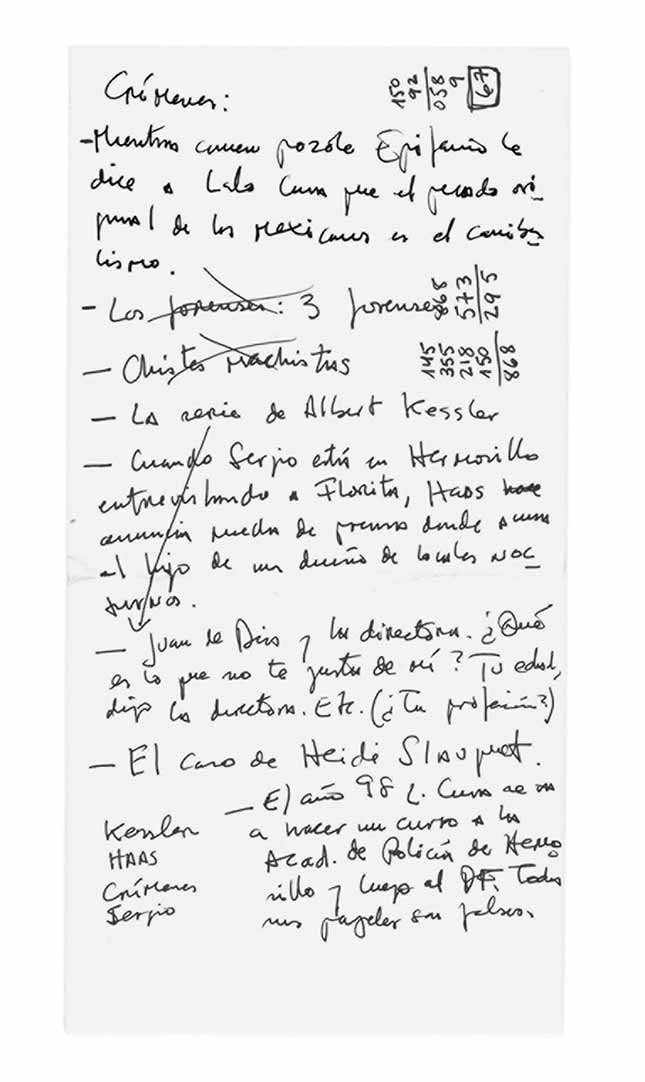 Crímenes:
150
92
058
9
67
- Mientras comen pozole Epifanio le
dice a Lalo Cura que el pecado ori_
ginal de los mexicanos es el caniba_
lismo.
- Los forenses: 3 forenses
868
573
295
- Chistes machistas
145
355
218
150
868
- La serie de Albert Kessler
- Cuando Sergio está en Hermosillo
entrevistando a Florita, Haas hace
anuncia rueda de prensa donde acusa
al hijo de un dueño de locales noc_
turnos.
- Juan de Dios y la directora. ¿Qué
es lo que no te gusta de mí? Tu edad,
dijo la directora. Etc. (¿Tu profesión?)
- El caso de Heidi Slauquet.
- El año 98 L. Cura se va
a hacer un curso a la
Acad. de Policía de Hermo
sillo y luego al DF. Todos
sus papeles son falsos.
Kessler
HAAS
Crímenes
Sergio